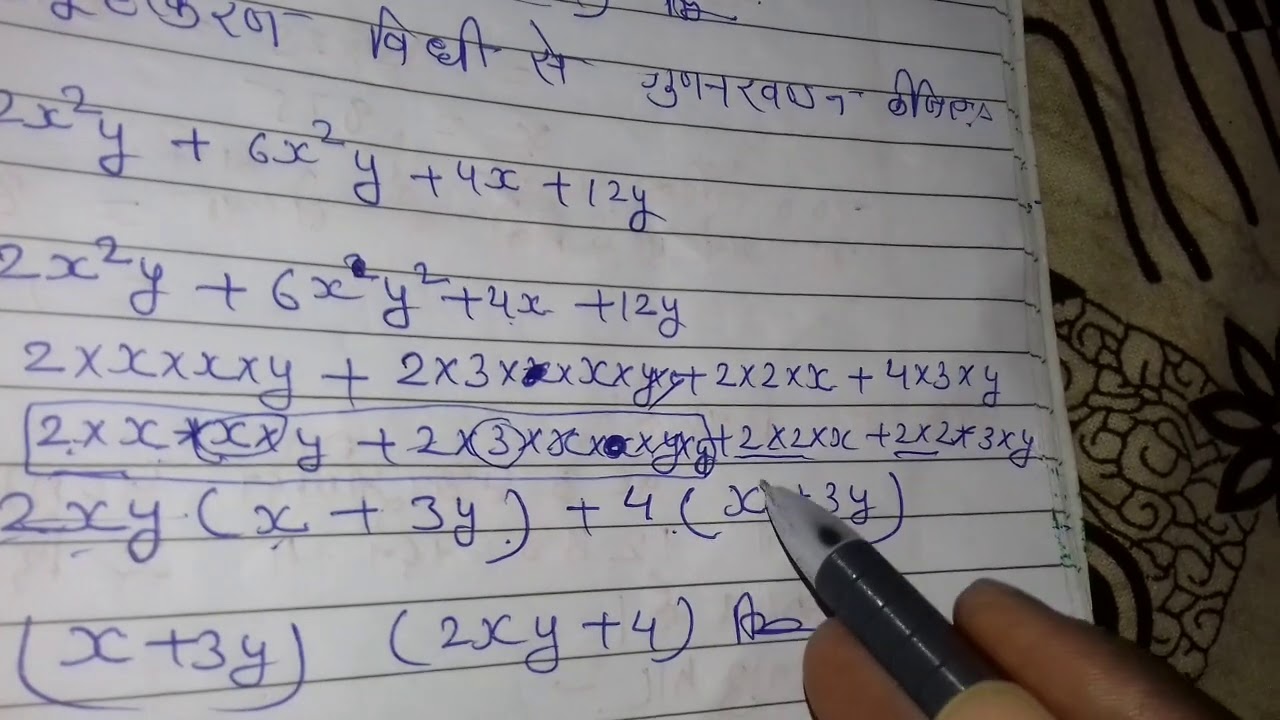 विधी से गुणनखण्डन कीजिए
2x²y + 6x²y + 4x + 12y
2x²y + 6xy² + 4x + 12y
2×x×x×y + 2×3×x×y×y + 2×2×x + 4×3×y
2×x×x×y + 2×3×x×y×y + 2×2×x + 2×2×3×y
2xy (x + 3y) + 4 (x + 3y)
(x + 3y) (2xy + 4) Ans